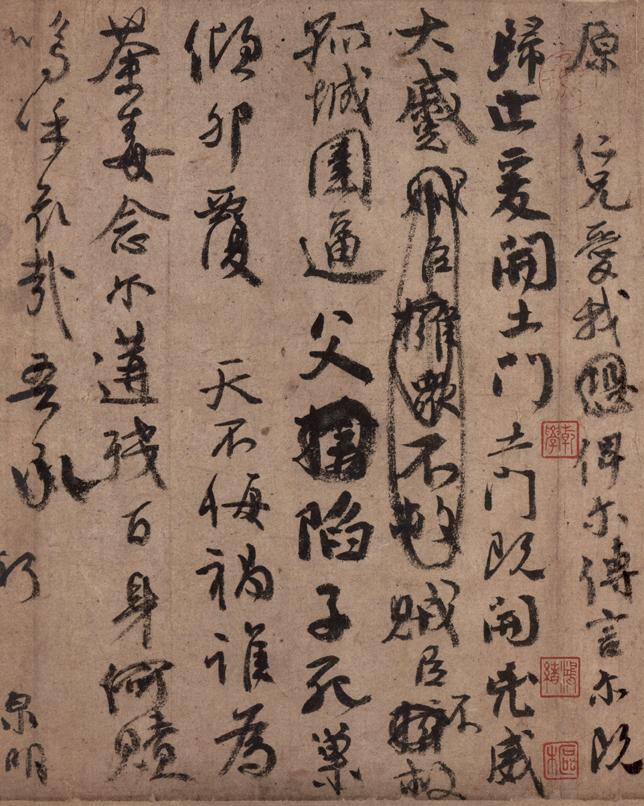 原 仁兄愛我俾尔傳言尔既
歸止爰開土門土門既開凶威
大蹙賊臣擁衆不救賊臣不救
孤城圍逼父陷子死巢
傾卵覆 天不悔禍誰為
荼毒念尔遘殘百身何贖
嗚呼哀哉吾承
泉明
乾學
鴻緒